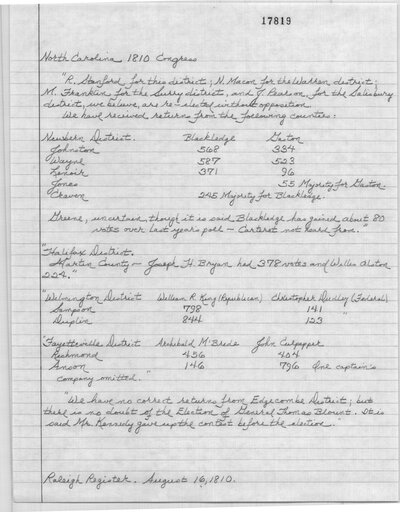 17819
North Carolina 1810 Congress
"R. Stanford for this district; N. Macon for the Warren district;
M. Franklin for the Surry district, and J. Pearson, for the Salisbury
district, we believe, are re-elected without opposition.
We have received returns from the following counties:
Newbern District. Blackledge Gaston
Johnston 568 334
Wayne 587 523
Lenoir 371 96
Jones 55 Majority for Gaston.
Craven 245 Majority for Blackledge.
Greene, uncertain, though it is said Blackledge has gained about 80
votes over last years poll - Carteret not heard from."
"Halifax District.
Martin County - Joseph H. Bryan had 378 votes and Willis Alston
224."
"Wilmington District William R. King (Republican) Christopher Dudley (Federal)
Sampson 798 141
Duplin 844 123 "
"Fayetteville District Archibald McBride John Culpepper
Richmond 436 404
Anson 146 796 One captain's
company omitted."
"We have no correct returns from Edgecombe District; but
there is no doubt of the Election of General Thomas Blount. It is
said Mr. Kennedy give up the contest before the election."
Raleigh Register. August 16, 1810.